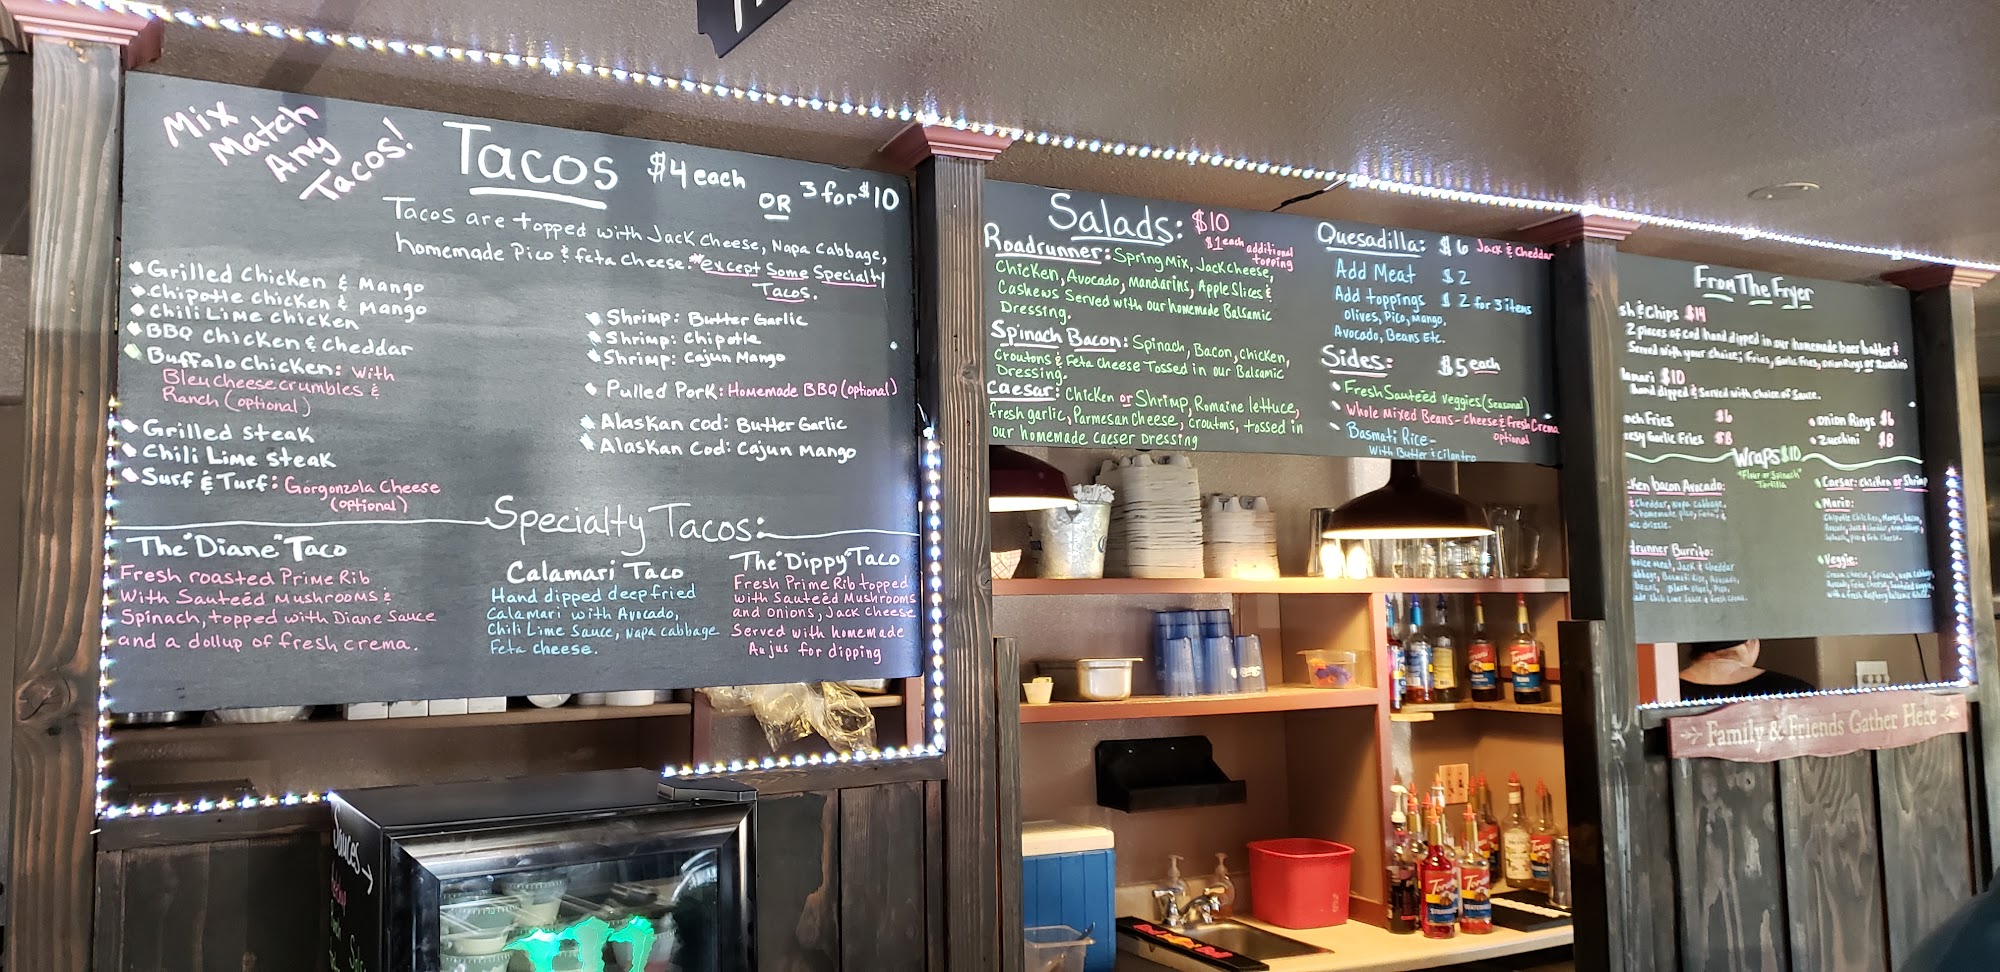 Mix
Match
Any
Tacos!
Tacos $4 each OR 3 for $10
Tacos are topped with Jack cheese, Napa Cabbage,
homemade Pico & feta cheese. *except Some Specialty
Tacos.
Grilled Chicken & Mango
Chipotle Chicken & Mango
Chili Lime Chicken
BBQ Chicken & Cheddar
Buffalo Chicken: With
Bleu cheese crumbles &
Ranch (optional)
Grilled Steak
Chili Lime Steak
Surf & Turf: Gorgonzola Cheese
(optional)
Shrimp: Butter Garlic
Shrimp: Chipotle
Shrimp: Cajun Mango
Pulled Pork: Homemade BBQ (optional)
Alaskan Cod: Butter Garlic
Alaskan Cod: Cajun Mango
Specialty Tacos:
The "Diane" Taco
Fresh roasted Prime Rib
With Sauteéd Mushrooms &
Spinach, topped with Diane Sauce
and a dollup of fresh crema.
Calamari Taco
Hand dipped deep fried
Calamari with Avocado,
Chili Lime Sauce, Napa cabbage
Feta cheese.
The "Dippy" Taco
Fresh Prime Rib topped
with Sauteéd Mushrooms
and onions, Jack Cheese
Served with homemade
Aujus for dipping
Salads: $10
$1 each additional
topping
Roadrunner: Spring Mix, Jack cheese,
Chicken, Avocado, Mandarins, Apple Slices &
Cashews Served with our homemade Balsamic
Dressing.
Spinach Bacon: Spinach, Bacon, Chicken,
Croutons & Feta Cheese Tossed in our Balsamic
Dressing.
Caesar: Chicken or Shrimp, Romaine lettuce,
fresh garlic, Parmesan Cheese, croutons, tossed in
our homemade caeser Dressing
Quesadilla: $6 Jack & Cheddar
Add Meat $2
Add toppings $2 for 3 items
olives, Pico, Mango,
Avocado, Beans Etc.
Sides: $5 each
Fresh Sauteéd veggies (Seasonal)
Whole Mixed Beans - cheese & Fresh Crema
optional
Basmati Rice -
With Butter & cilantro
From The Fryer
sh & Chips $14
2 pieces of cod hand dipped in our homemade beer batter &
Served with your choice; Fries, Garlic Fries, Onion Rings or Zucchini
lamari $10
hand dipped & served with choice of sauce.
nch Fries $6
esy Garlic Fries $8
Onion Rings $6
Zucchini $8
Wraps $10
"Flour or Spinach"
Tortilla
ken bacon Avocado:
Cheddar, Napa cabbage,
homemade pico, Feta &
drizzle.
drunner Burrito:
meat, Jack & Cheddar
abbage, Basmati Rice, Avocado,
Black olives, Pico,
Chili Lime Sauce & fresh Crema.
Caesar: chicken or Shrimp
Mario:
Chipotle Chicken, Mango, bacon,
Avocado, Jack & Cheddar, Napa cabbage,
Spinach, pico & Feta Cheese.
Veggie:
Cream Cheese, Spinach, Napa Cabbage,
Avocado, Feta Cheese, Sauteéd Veggies,
with a fresh Raspberry balsamic
Family & Friends Gather Here
Sauces
Torani